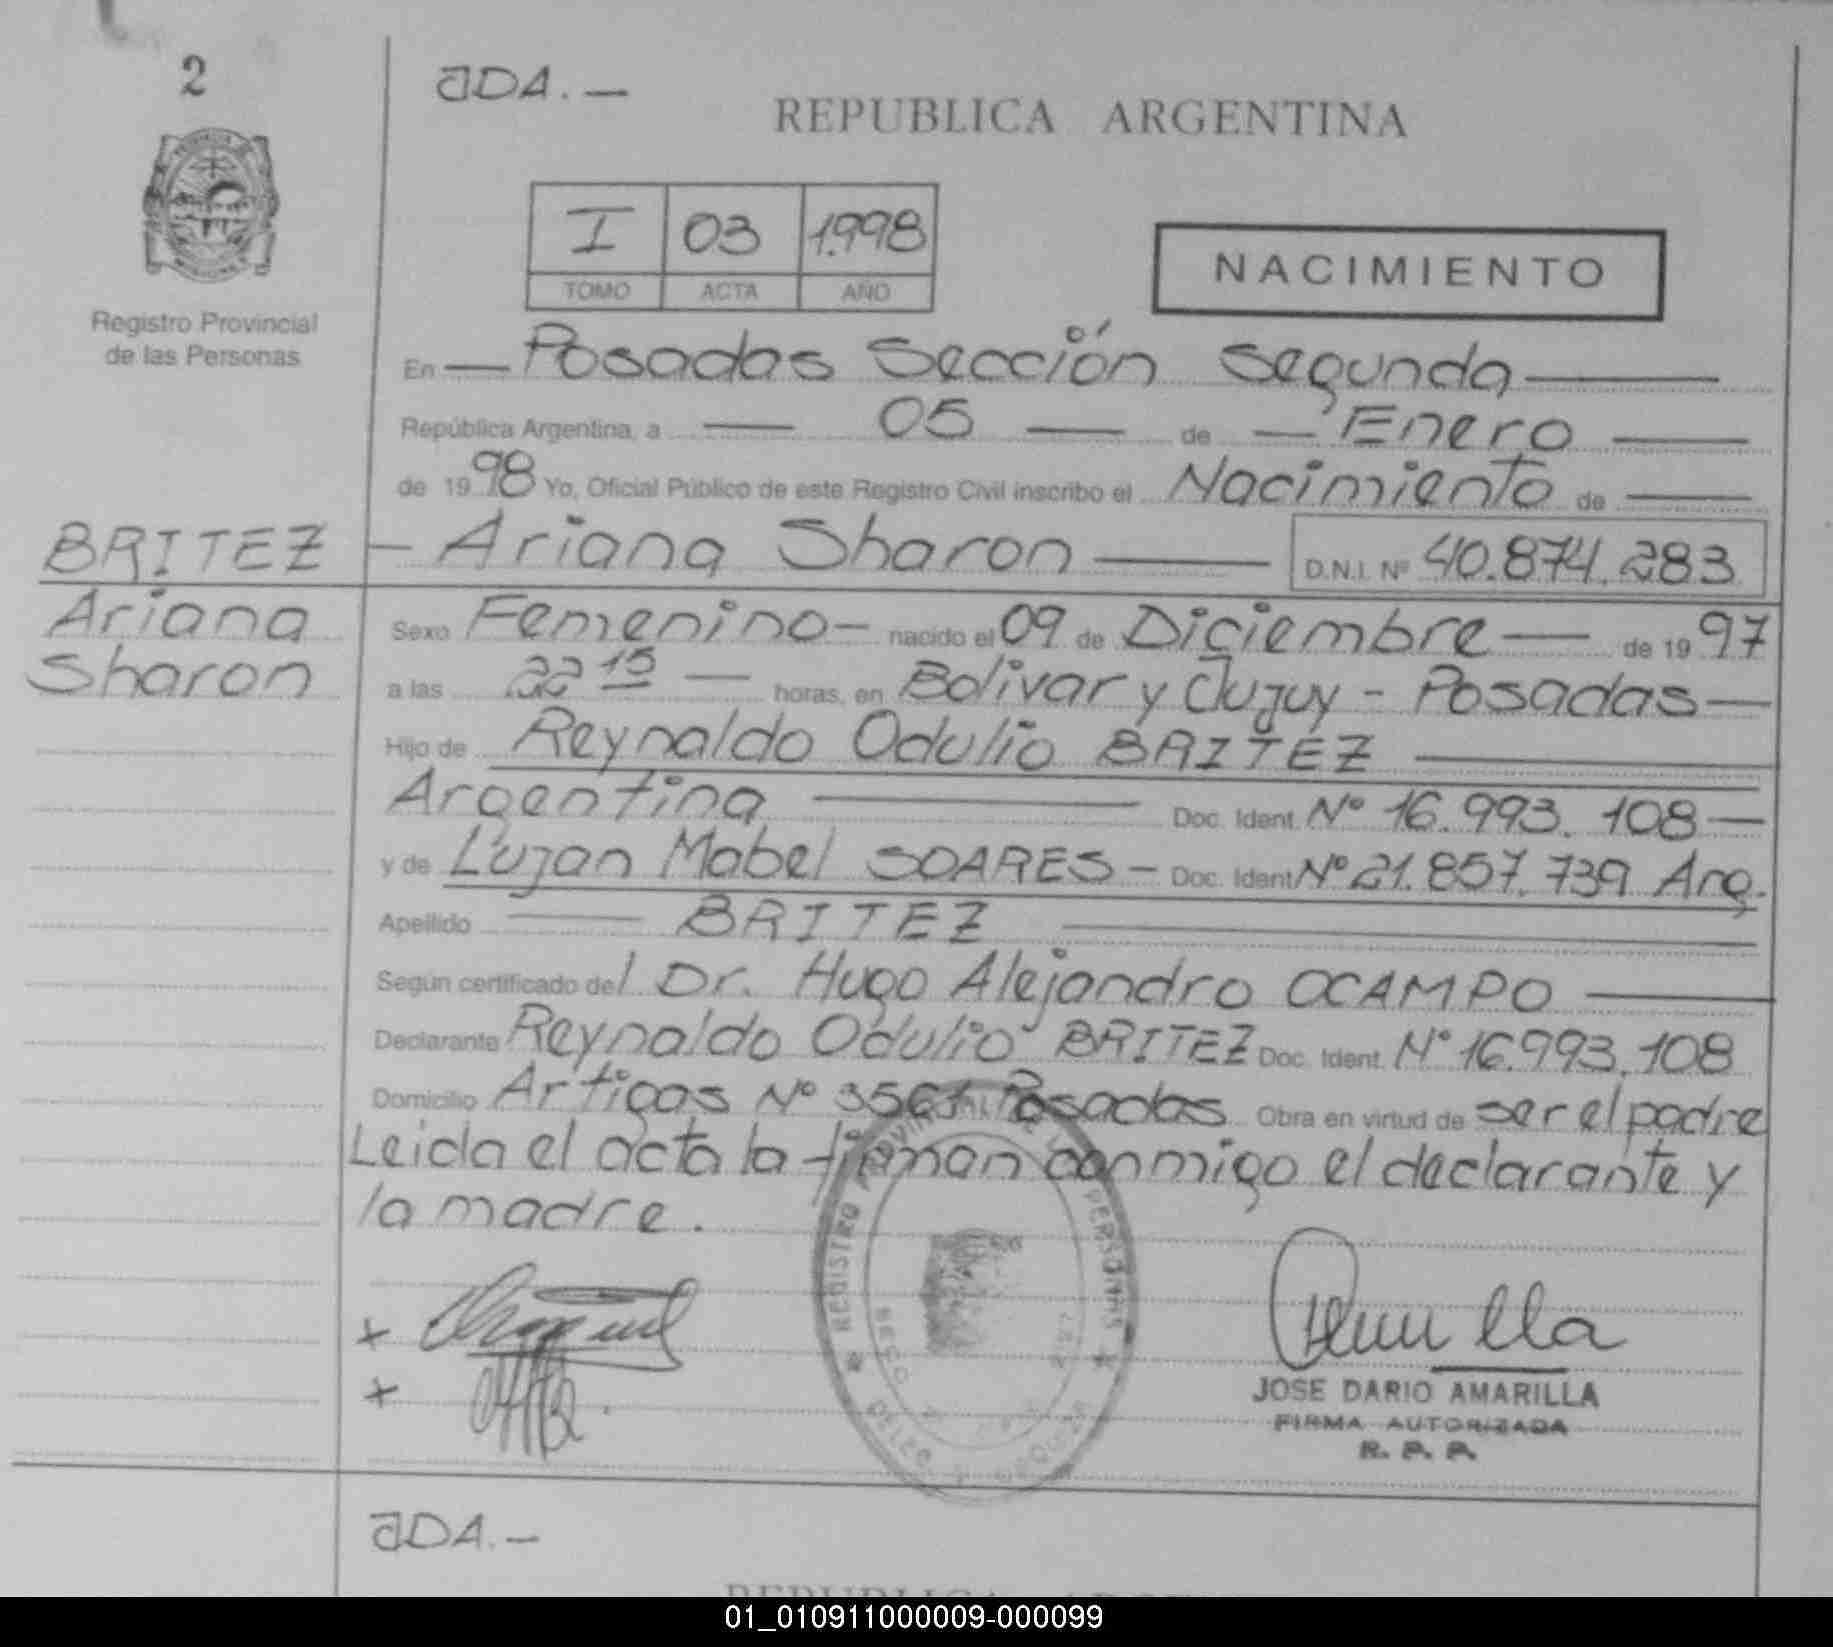 2
JDA.-
REPUBLICA ARGENTINA
I 03 1.998
TOMO ACTA AÑO
NACIMIENTO
Registro Provincial
de las Personas
En Posadas Sección Segunda
República Argentina, a 05 de Enero
de 1998 Yo, Oficial Público de este Registro Civil inscribo el Nacimiento de
BRITEZ
Ariana
Sharon
Ariana Sharon D.N.I. Nº 40.874.283
Sexo Femenino- nacido el 09 de Diciembre de 1997
a las 22 15 horas, en Bolivar y Jujuy - Posadas
Hijo de Reynaldo Odulio BRITEZ
Argentina Doc. Ident. Nº 16.993.108
y de Lujan Mabel SOARES - Doc. Ident Nº 21.857.739 Arg.
Apellido BRITEZ
Según certificado del Dr. Hugo Alejandro OCAMPO
Declarante Reynaldo Odulio BRITEZ Doc. Ident. Nº 16.993.108
Domicilio Artigas Nº 3561 Posadas Obra en virtud de ser el padre
Leida el acta la firman conmigo el declarante y
la madre.
REGISTRO PROVINCIAL DE LAS PERSONAS
JOSE DARIO AMARILLA
FIRMA AUTORIZADA
R. P. P.
JDA.-
01_010911000009-000099